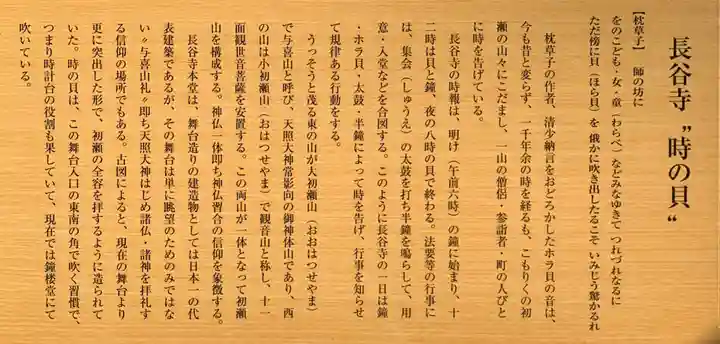 長谷寺 〝時の貝〟
【枕草子】 師の坊に
をのこども・女・童(わらべ)などみなゆきて つれづれなるに
ただ傍に貝(ほら貝)を 俄かに吹き出したるこそ いみじう驚かるれ
枕草子の作者、清少納言をおどろかしたホラ貝の音は、
今も昔と変らず、一千年余の時を経るも、こもりくの初
瀬の山々にこだまし、一山の僧侶・参詣者・町の人びと
に時を告げている。
長谷寺の時報は、明け(午前六時)の鐘に始まり、十
二時は貝と鐘、夜の八時の貝で終わる。法要等の行事に
は、集会(しゅうえ)の太鼓を打ち半鐘を鳴らして、用
意・入堂などを合図する。このように長谷寺の一日は鐘
・ホラ貝・太鼓・半鐘によって時を告げ、行事を知らせ
て規律ある行動をする。
うっそうと茂る東の山が大初瀬山(おおはつせやま)
で与喜山と呼び、天照大神常影向の御神体山であり、西
の山は小初瀬山(おはつせやま)で観音山と称し、十一
面観世音菩薩を安置する。この両山が一体となって初瀬
山を構成する。神仏一体即ち神仏習合の信仰を象徴する。
長谷寺本堂は、舞台造りの建造物としては日本一の代
表建築であるが、その舞台は単に眺望のためのみではな
い〝与喜山礼〟即ち天照大神はじめ諸仏・諸神を拝礼す
る信仰の場所でもある。古図によると、現在の舞台より
更に突出した形で、初瀬の全容を拝するように造られて
いた。時の貝は、この舞台入口の東南の角で吹く習慣で、
つまり時計台の役割も果していて、現在では鐘楼堂にて
吹いている。